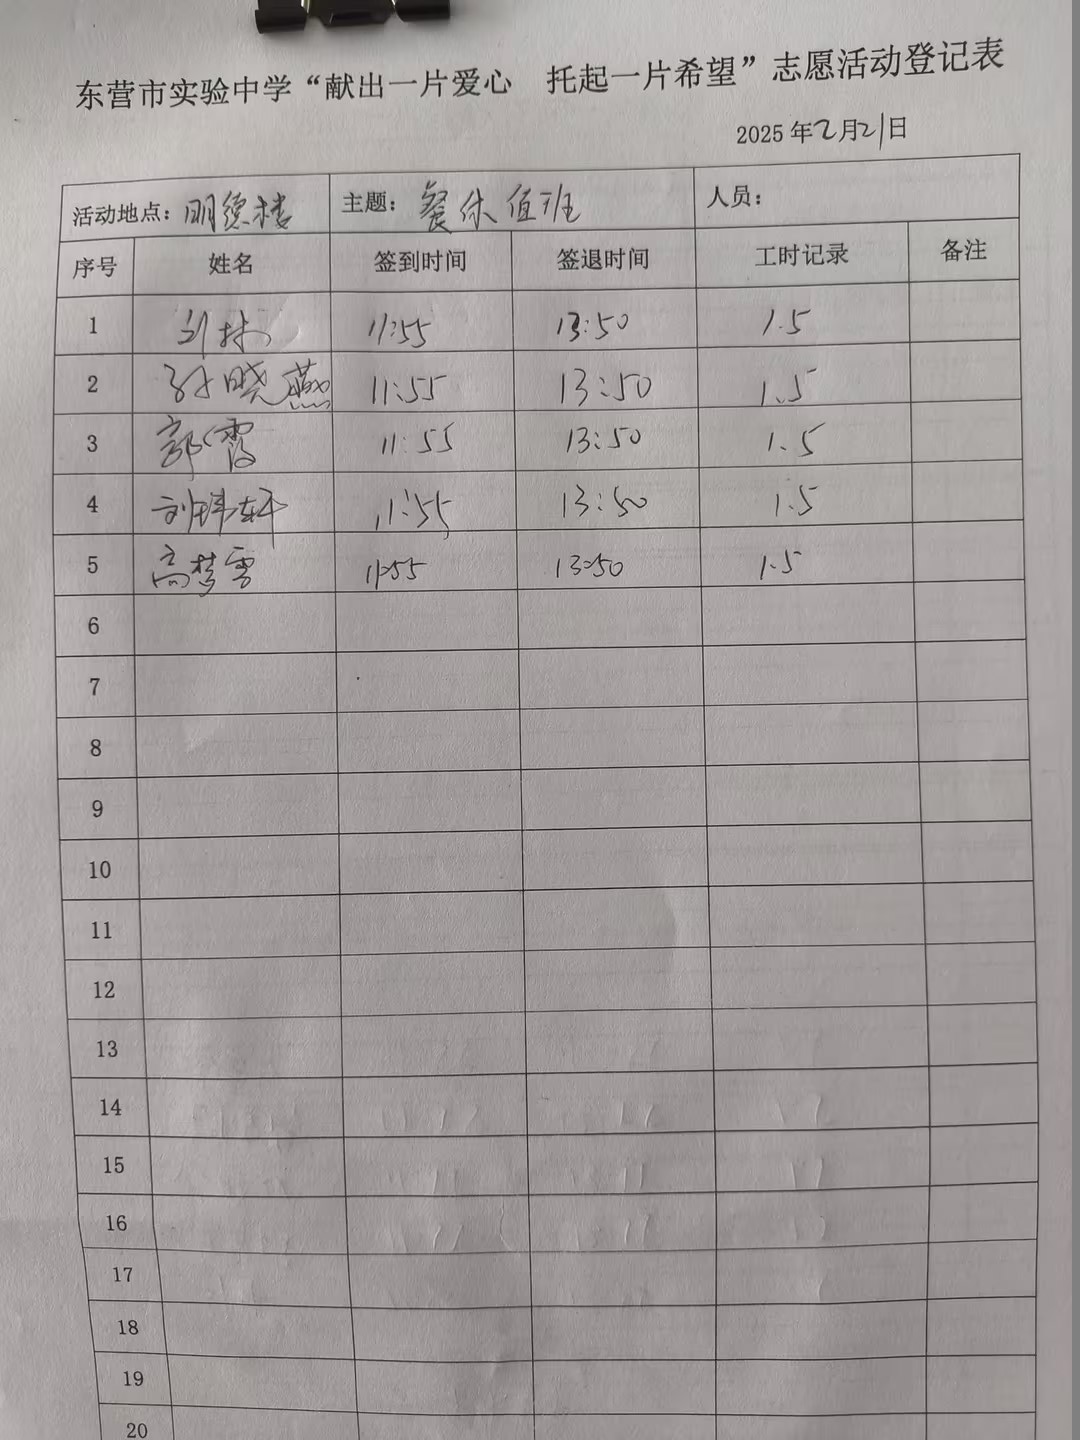 东营市实验中学“献出一片爱心　托起一片希望”志愿活动登记表
2025年2月21日
活动地点：明德楼 主题：餐休值班 人员：
序号 姓名 签到时间 签退时间 工时记录 备注
1 刘林 11:55 13:50 1.5
2 孙晓燕 11:55 13:50 1.5
3 郭霞 11:55 13:50 1.5
4 刘玮轩 11:55 13:50 1.5
5 高梦雪 11:55 13:50 1.5
6
7
8
9
10
11
12
13
14
15
16
17
18
19
20